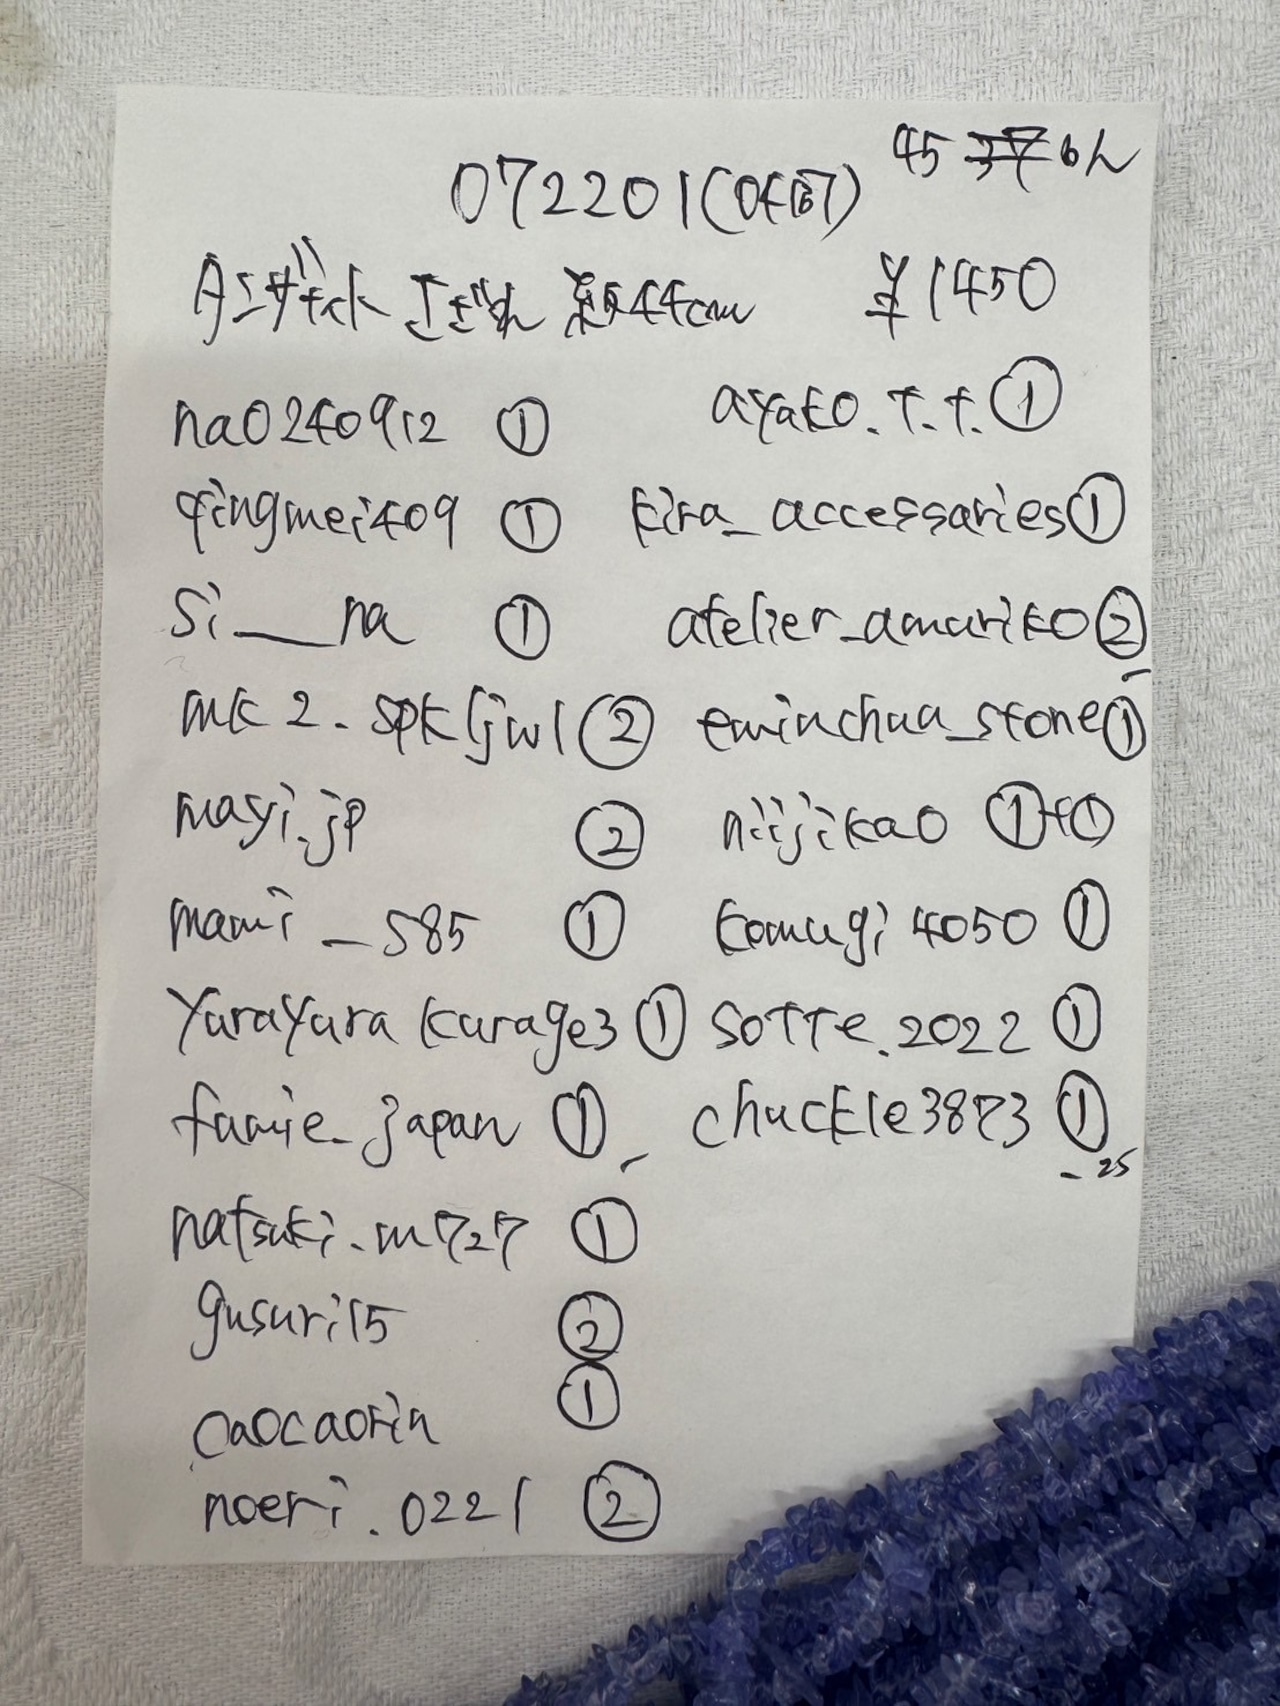 45 37 6ん
072201(0467)
タンザナイト さざれ 約44cm ¥1450
na0240912 ①
qingmei409 ①
Si___na ①
mk2.spkljwl ②
mayi.jp ②
mami_585 ①
YuraYura kurage3 ①
famie_japan ①
natsuki.m727 ①
gusuri15 ②
caocaorin ①
noeri.0221 ②
ayako.T.T. ①
kira_accessaries ①
atelier_amariko ②
eminchua_stone ①
niijikao ①+①
komugi4050 ①
sotte.2022 ①
chuckle3873 ①
25